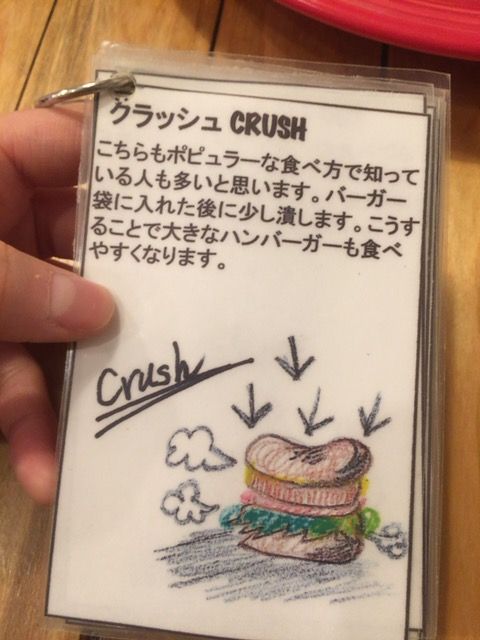 クラッシュ CRUSH
こちらもポピュラーな食べ方で知って
いる人も多いと思います。バーガー
袋に入れた後に少し潰します。こうす
ることで大きなハンバーガーも食べ
やすくなります。
Crush